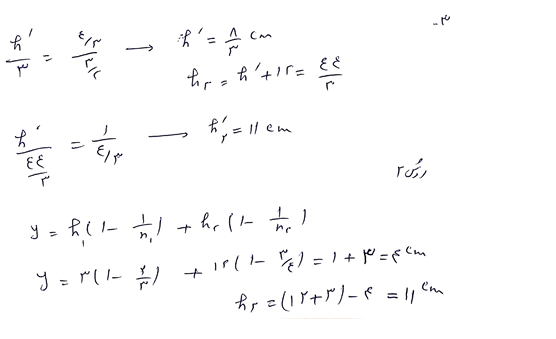 -۳
h'/۳ = (۴/۳)/(۳/۲) → h' = ۸/۳ cm
h۲ = h' + ۱۲ = ۴۴/۳
h'/(۴۴/۳) = ۱/(۴/۳) → h'۲ = ۱۱ cm
روش ۲
y = h۱(۱ - ۱/n۱) + h۲(۱ - ۱/n۲)
y = ۳(۱ - ۲/۳) + ۱۲(۱ - ۳/۴) = ۱ + ۳ = ۴ cm
h۲ = (۱۲+۳) - ۴ = ۱۱ cm